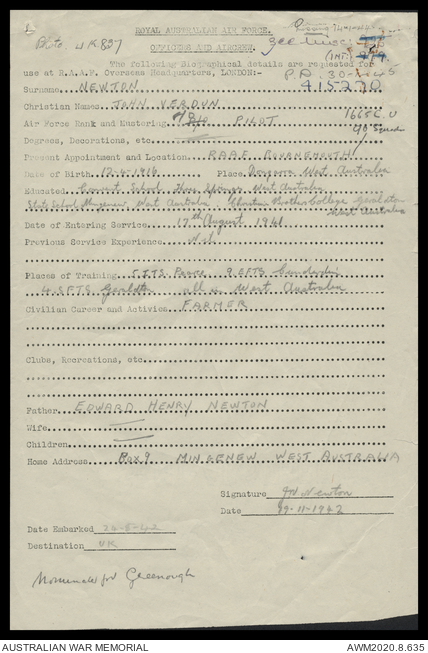 ROYAL AUSTRALIAN AIR FORCE.
OFFICERS AND AIRCREW.
The following Biographical details are requested for
use at R.A.A.F. Overseas Headquarters, LONDON:-
P.P. 30-1-45
Surname NEWTON 415270
Christian Names JOHN VERDUN
Air Force Rank and Mustering PILOT 1665 C.U
Degrees, Decorations, etc
Present Appointment and Location RAAF BOURNEMOUTH
Date of Birth 12-4-1916 Place West Australia
Educated Convent School Three Springs West Australia
State School Mingenew West Australia Christian Brothers College Geraldton
West Australia
Date of Entering Service 17th August 1941
Previous Service Experience Nil
Places of Training 5.I.T.S. Pearce 9 EFTS Cunderdin
4 SFTS Geraldton all in West Australia
Civilian Career and Activies FARMER
Clubs, Recreations, etc
Father EDWARD HENRY NEWTON
Wife
Children
Home Address Box 9 MINGENEW WEST AUSTRALIA
Signature JV Newton
Date 29-11-1942
Date Embarked
Destination UK
Nominated for Greenough
AUSTRALIAN WAR MEMORIAL AWM2020.8.635